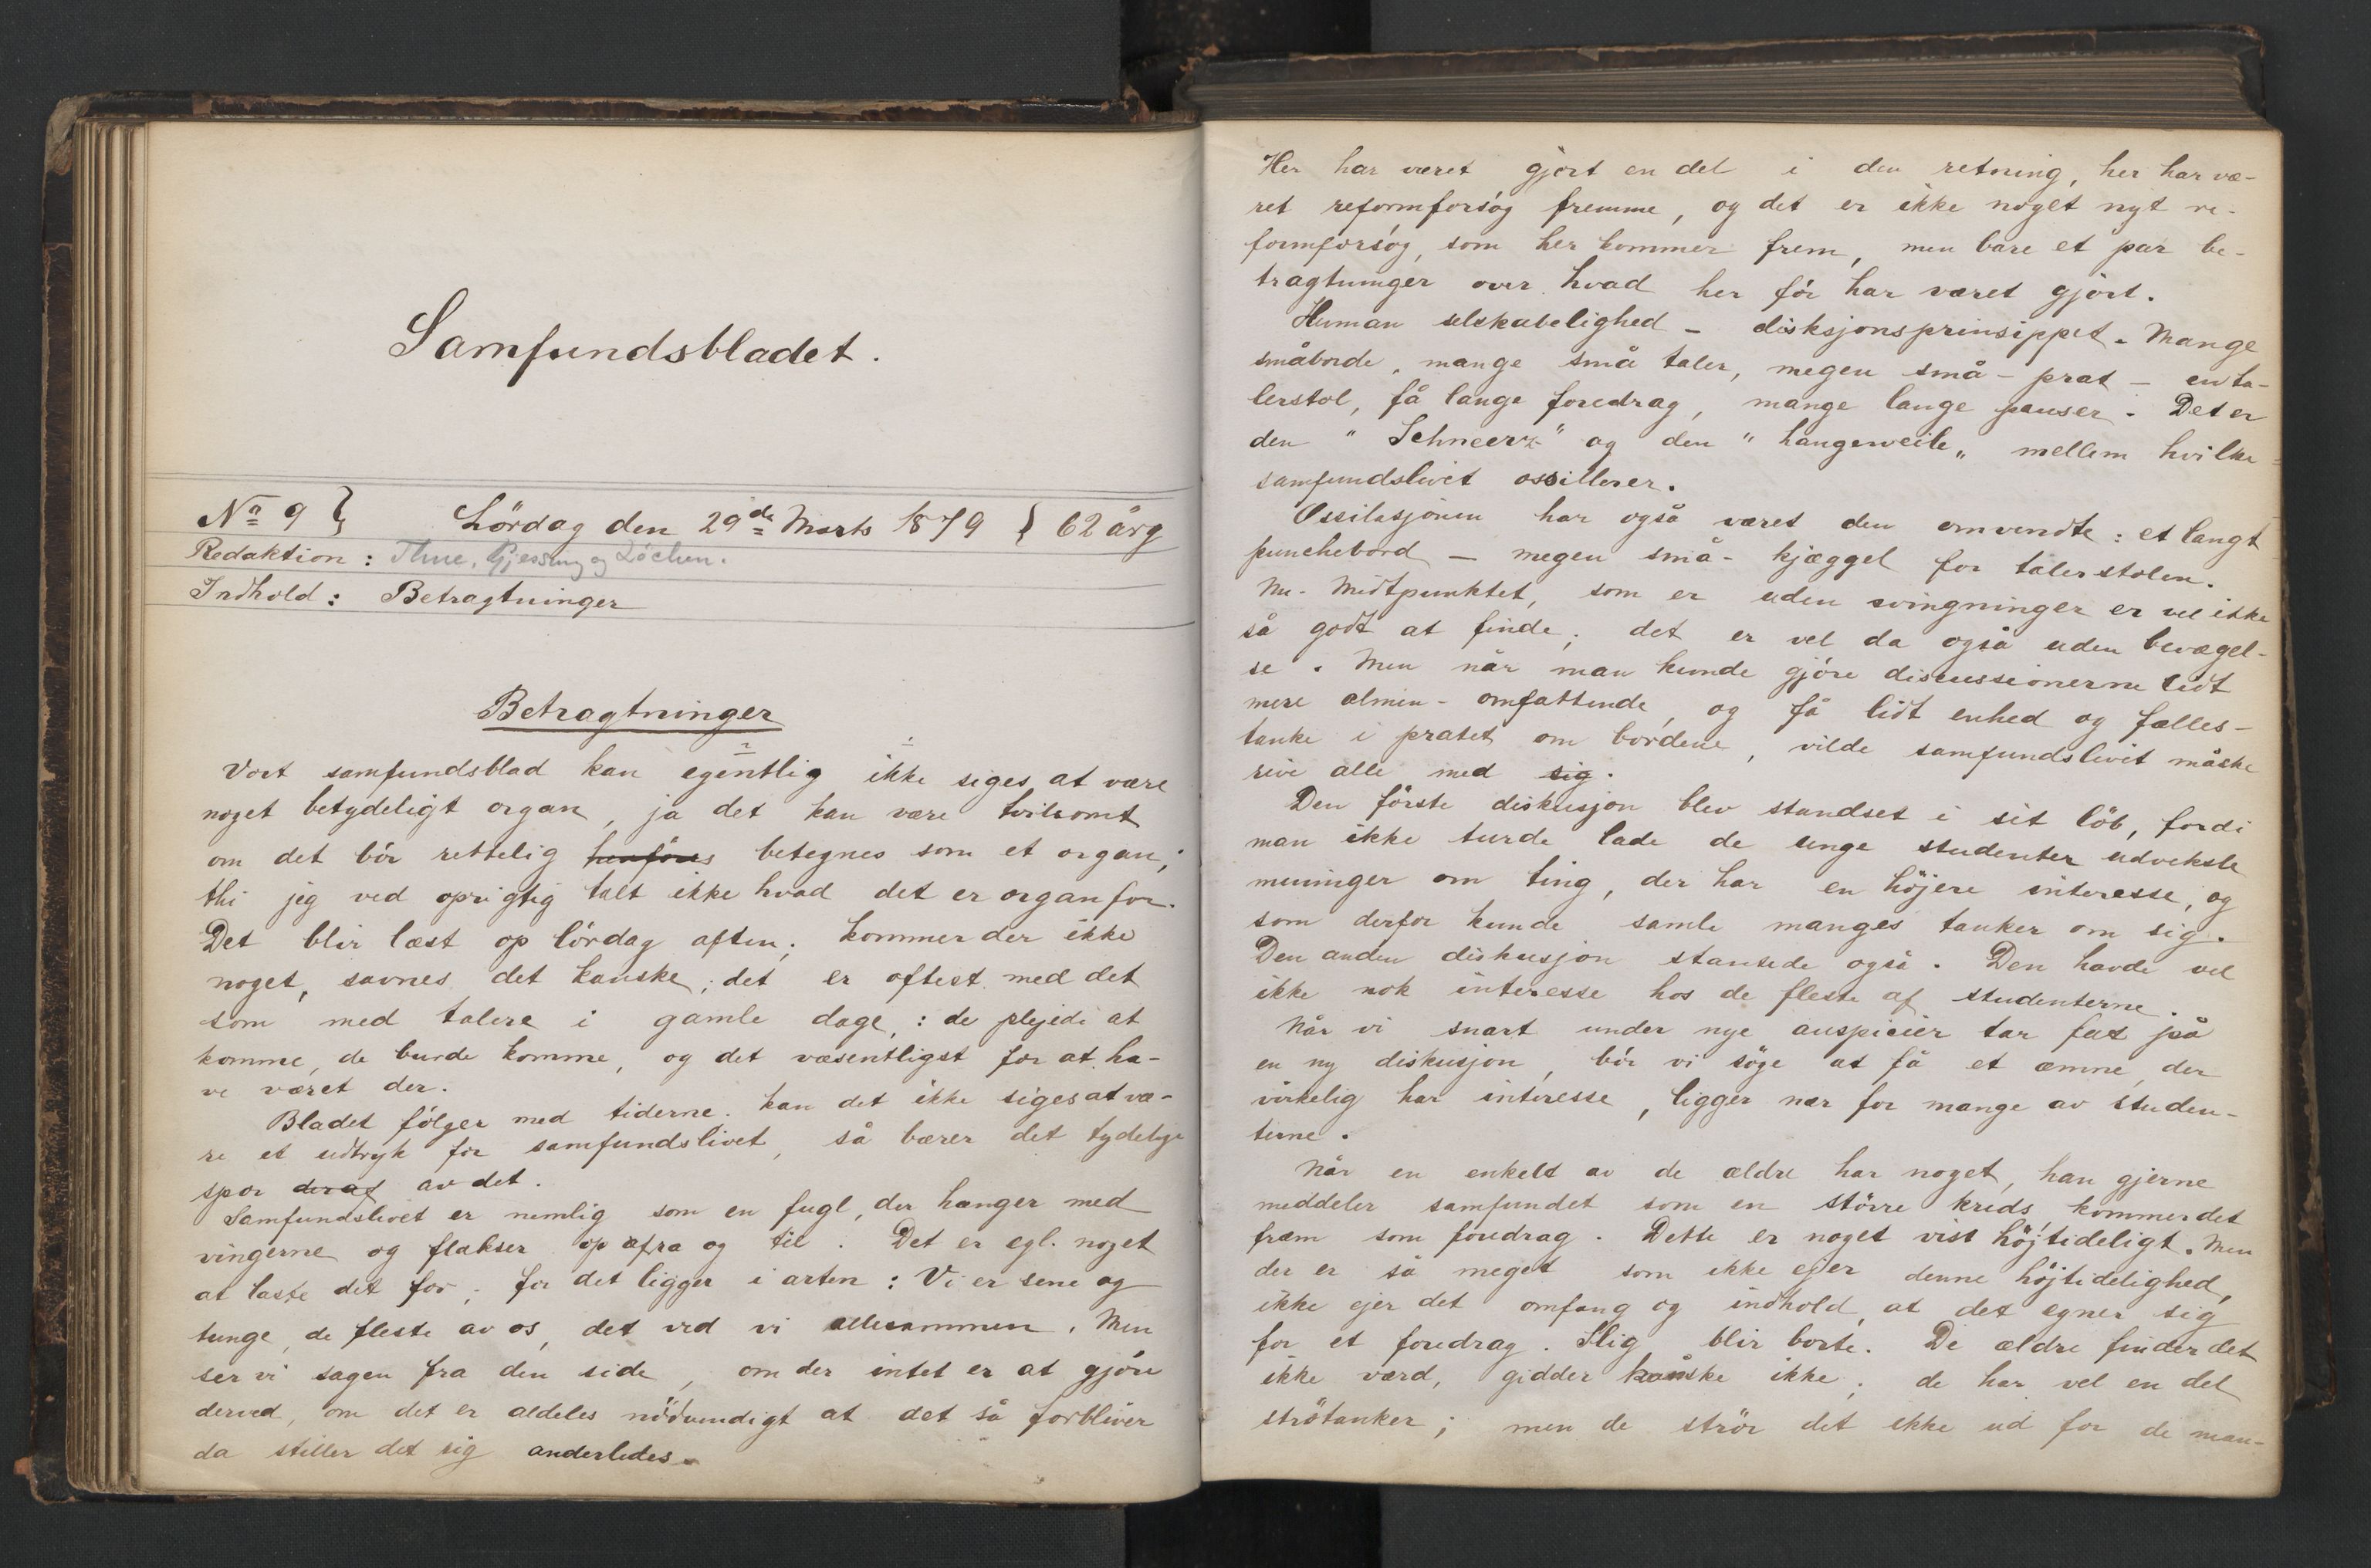 Samfundsbladet.
No 9 } Lördag den 29de Marts 1879 { 62 årg
Redaktion: Thue, Gjessing og Löchen.
Indhold: Betragtninger
Betragtninger
Vort samfundsblad kan egentlig ikke siges at være
noget betydeligt organ, ja det kan være tvilsomt
om det bör rettelig henföres betegnes som et organ;
thi jeg ved oprigtig talt ikke hvad det er organ for.
Det blir læst op lördag aften; kommer der ikke
noget, savnes det kanske; det er oftest med det
som med talere i gamle dage: de plejede at
komme, de burde komme, og det væsentligst for at ha-
ve været der.
Bladet fölger med tiderne. kan det ikke siges at væ-
re et udtryk for samfundslivet, så bærer det tydelige
spor deraf av det.
Samfundslivet er nemlig som en fugl, der hænger med
vingerne og flakser op afra og til. Det er egl. noget
at laste det for; for det ligger i arten: Vi er sene og
tunge, de fleste av os, det ved vi allesammen. Men
ser vi sagen fra den side, om der intet er at gjöre
derved, om det er aldeles nödvendigt at det så forbliver
da stiller det sig anderledes.
Her har været gjört en del i den retning, her har væ-
ret reformforsög fremme, og det er ikke noget nyt re-
formforsög, som her kommer frem, men bare et par be-
tragtninger over hvad her för har været gjört.
Human selskabelighed - disksjonsprinsippet. Mange
småborde, mange små taler, megen små-prat - en ta-
lerstol, få lange foredrag, mange lange pauser. Det er
den "Schneerz" og den "Langeweile" mellem hvilke
samfundslivet ossillerer.
Ossilasjonen har også været den omvendte: et langt
punchebord - megen små-kjæggel for talerstolen.
Nu. Midtpunktet, som er uden svingninger er vel ikke
så godt at finde; det er vel da også uden bevægel-
se. Men når man kunde gjöre discussionerne lidt
mere almen-omfattende, og få lidt enhed og fælles-
tanke i pratet om bordene, vilde samfundslivet måske
rive alle med sig.
Den förste diskusjon blev standset i sit löb, fordi
man ikke turde lade de unge studenter udveksle
meninger om ting, der har en höjere interesse, og
som derfor kunde samle manges tanker om sig.
Den anden diskusjon stansede også. Den havde vel
ikke nok interesse hos de fleste af studenterne.
Når vi snart under nye auspicier tar fat på
en ny diskusjon, bör vi söge at få et æmne, der
virkelig har interesse, ligger nær for mange av studen-
terne.
Når en enkelt av de ældre har noget, han gjerne
meddeler samfundet som en större kreds, kommer det
fræm som foredrag. Dette er noget vist höjtideligt. Men
der er så meget som ikke ejer denne höjtidelighed,
ikke ejer det omfang og indhold, at det egner sig
for et foredrag. Slig blir borte. De ældre finder det
ikke værd, gidder kanske ikke; de har vel en del
strötanker; men de strör det ikke ud for de man-